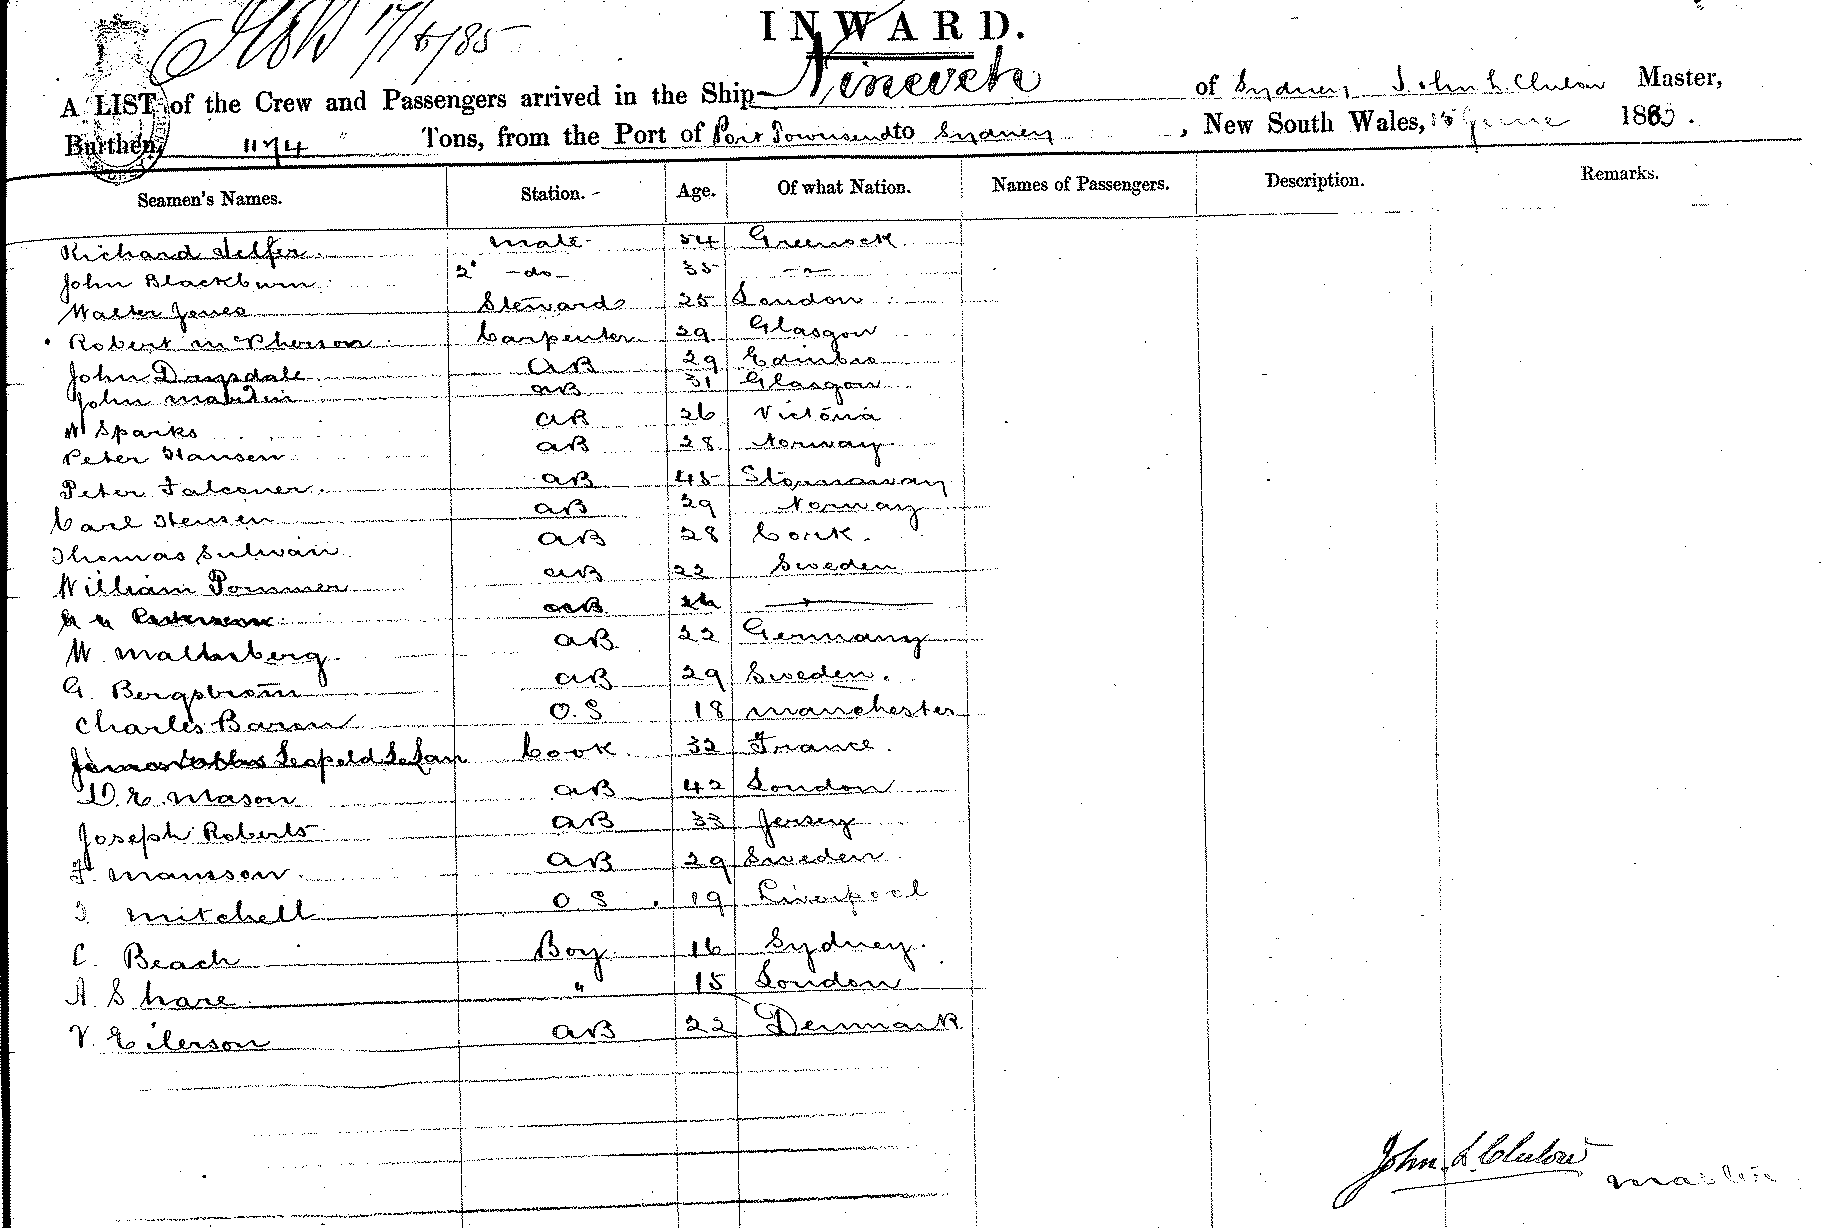 17/6/85
INWARD.
A LIST of the Crew and Passengers arrived in the Ship Nineveh of Sydney, John L. Clulow Master,
Burthen, 1174 Tons, from the Port of Port Townsend to Sydney, New South Wales, 15 June 1885.
Seamen's Names. Station. Age. Of what Nation. Names of Passengers. Description. Remarks.
Richard Telfer mate 54 Greenock
John Blackburn 2d -do- 35 -"-
Walter Jones Steward 25 London
Robert McPherson Carpenter 29 Glasgow
John Daysdale AB 29 Edinbro
John Martin AB 31 Glasgow
W Sparks AB 26 Victoria
Peter Hansen AB 28 Norway
Peter Falconer AB 45 Stornaway
Carl Hensen AB 29 Norway
Thomas Sulivan AB 28 Cork.
William Pommer AB 22 Sweden
AB
W. Maltesberg AB 22 Germany
G. Bergstrom AB 29 Sweden.
Charles Baron O.S 18 Manchester
Leopold Cook 32 France.
D. E. Mason AB 42 London
Joseph Roberts AB 33 Jersey
F. Mansson AB 29 Sweden
Mitchell O.S 19 Liverpool
C. Beach Boy 16 Sydney.
A. Share " 15 London
V. Eilerson AB 22 Denmark
John L. Clulow
Master